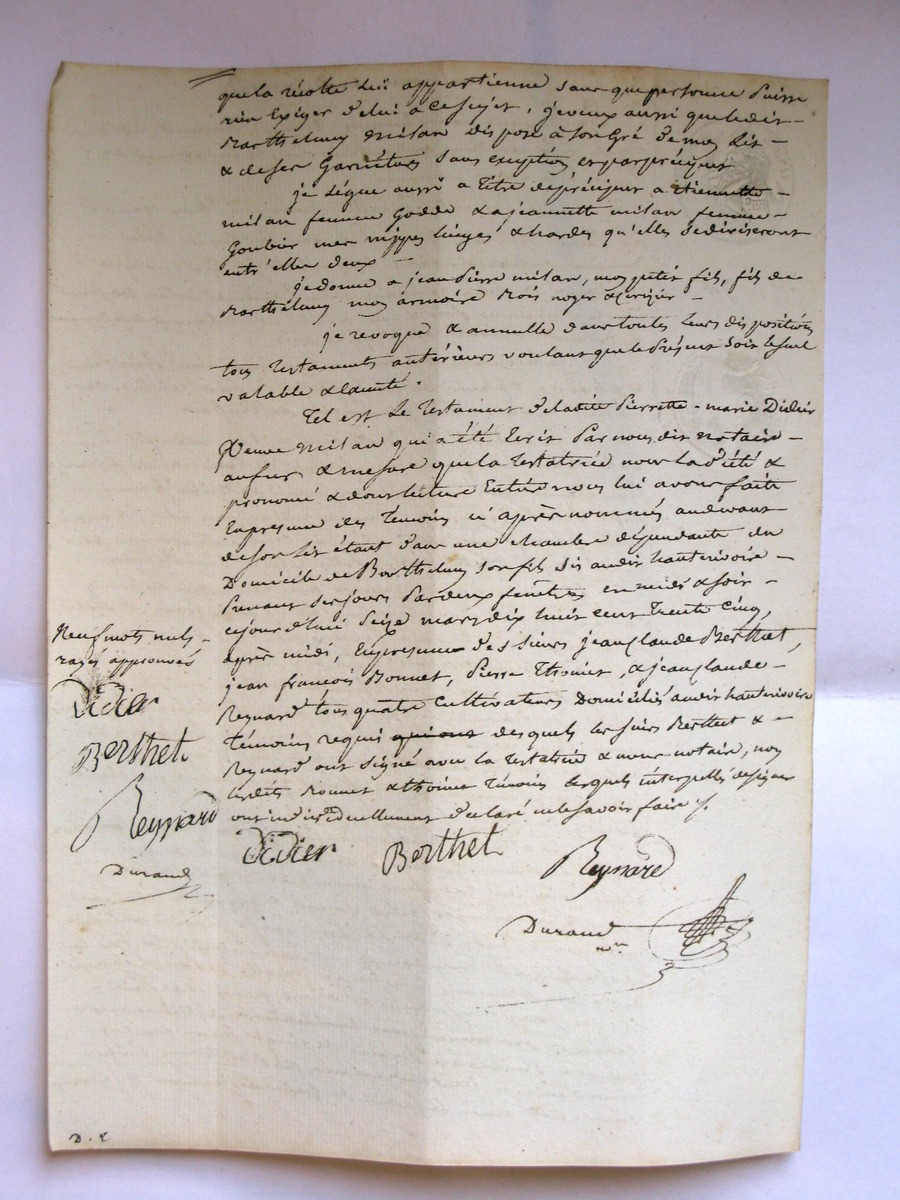 que la récolte lui appartienne sans que personne puisse
rien Exiger de lui a ce sujet, je veux aussi que le dit
Barthélemy milan dispose à son Gré de mon Lit
& de ses Garnitures sans exception, et par préciput
je Lègue aussi a titre de préciput a Etiennette
milan femme Godde & a jeannette milan femme
Goubier mes nippes linges & hardes qu'elles se diviseront
entr'elles deux
je donne a jean Pierre milan, mon petit fils, fils de
Barthélemy mon armoire Bois noyer & cerisier
je revoque & annulle dans toutes leurs dispositions
tous Testaments antérieurs voulant que le Présent soit le seul
valable & Exécuté.
Tel est Le Testament de ladite Pierrette-marie Didier
Veuve milan qui a été Ecrit Par nous dit notaire
au fur & mesure que la Testatrice nous la dicté &
prononcé & dont lecture Entière nous lui avons faite
En presence des Témoins ci après nommés au devant
de son Lit étant dans une chambre dépendante du
Domicile de Barthélemy son fils sis audit hauterivoire
Prenant ses jours Par deux fenêtres en midi & soir
cejourd'hui Seize mars dix huit cent Trente Cinq,
après midi, En presence des sieurs jean Claude Berthet,
jean françois Bonnet, Pierre Thoinet, & jean Claude
Reynard Tous quatre Cultivateurs Domiciliés audit hauterivoire
Témoins requis qui ont desquels les sieurs Berthet &
Reynard ont signé avec la Testatrice & nous notaire, non
lesdits Bonnet & Thoinet Témoins lesquels interpellés de signer
ont individuellement déclaré ne le savoir faire ./.
Neuf mots nuls
rayés approuvés
Didier
Berthet
Reynard
Durand
Didier Berthet
Reynard
Durand
nre
D. E